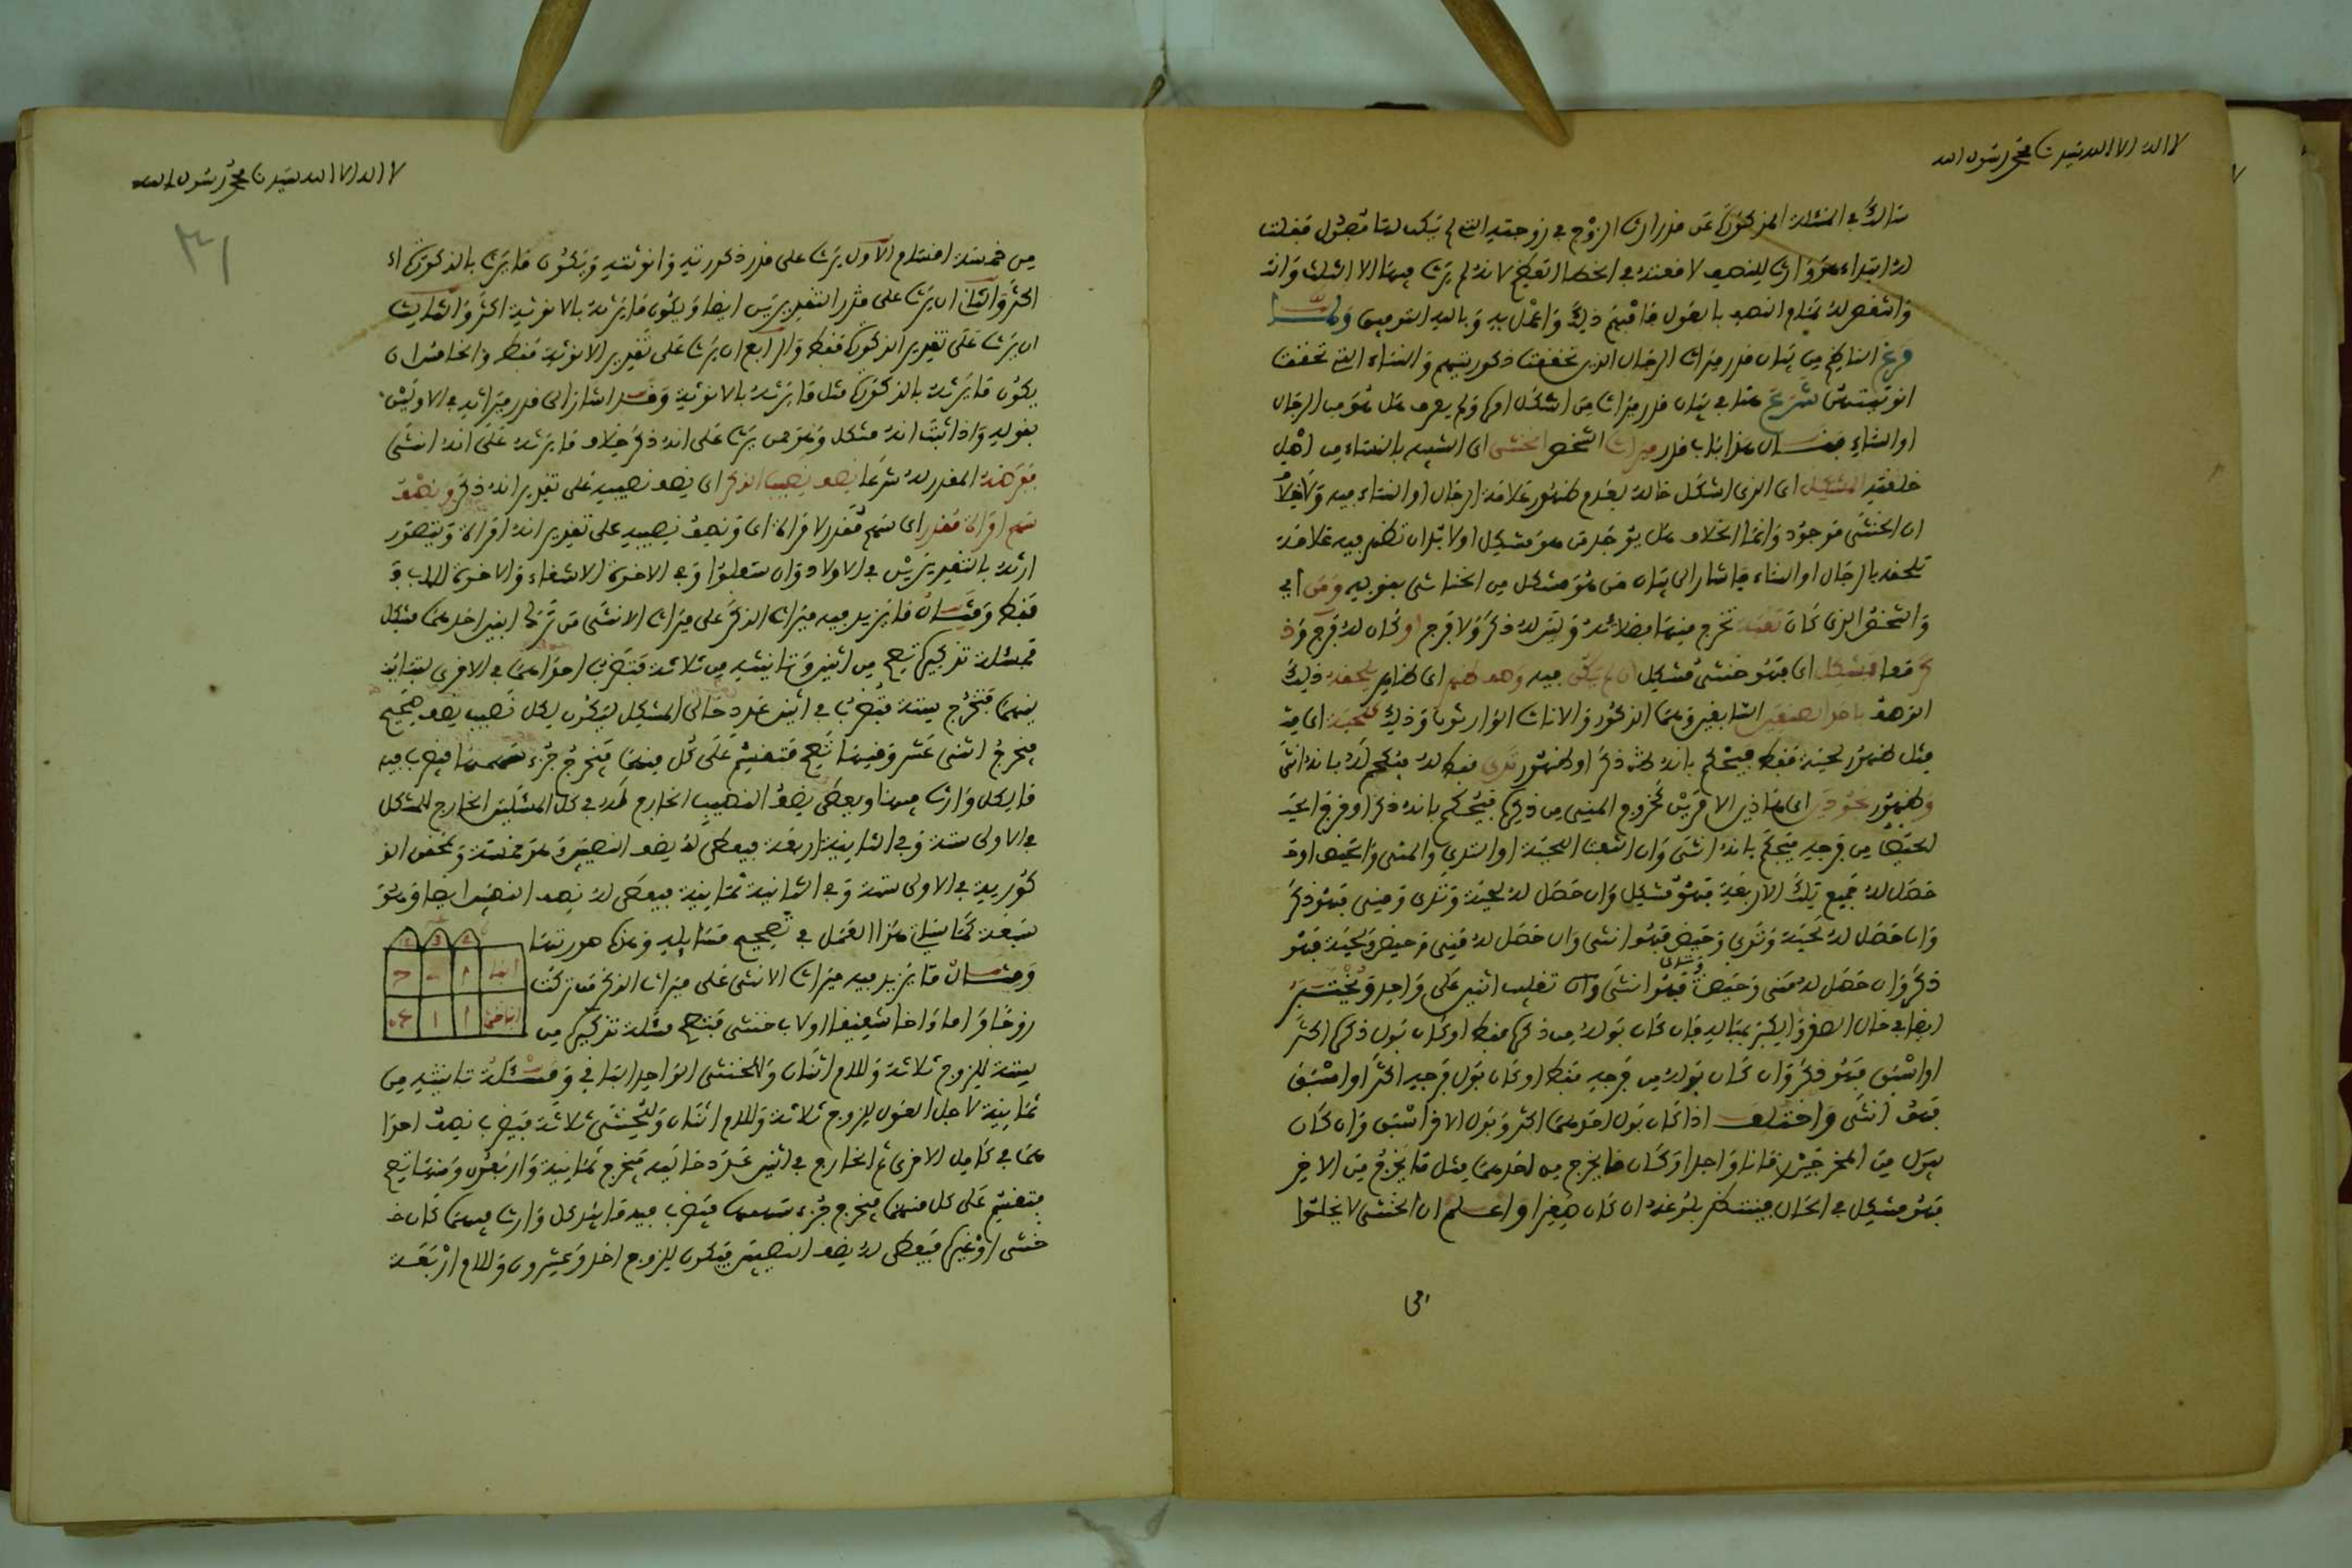 لا اله الا الله سيدنا محمد رسول الله
سالك في المسئلة المذكورة عن قدر ارث الزوج في زوجته التي لم فقلت
له ابتداء هو وارث للنصف لا لانه لم يرث منها الا الثلث وانه
وانتقص له تمام النصف بالعول فافهم ذلك واعمل به وبالله التوفيق ولما
فرغ الناظم من بيان قدر ميراث الرجال الذي تحققت ذكوريتهم والنساء التي تحققت
انوثيتهن شرع هنا في بيان قدر ميراث من اشكل امره ولم يعرف هل هو من الرجال
او النساء فقال هذا باب قدر ميراث الشخص الخنثى اي الشبيه بالنساء من اصل
خلقته المشكل اي الذي اشكل حاله بعدم ظهور علامة الرجال او النساء فيه ولا خلاف
ان الخنثى موجود وانما الخلاف هل يوجد من هو مشكل او لا بد ان تظهر فيه علامة
تلحقه بالرجال او النساء فاشار الى بيان من هو مشكل من الخناثى بقوله ومن اي
والشخص الذي كان ثقبة تخرج منها فضلاته وليس له ذكر ولا فرج او كان له فرج وذ
كر معا فمشكل اي فهو خنثى مشكل ان لم يكن فيه وصف ظهر اي ظاهر يلحقه ذلك
الوصف باحد الصنفين السابقين وهما الذكور والاناث الوارثون وذلك كلحية اي مثـ
مثل ظهور لحية فقط فيحكم بانه له ذكر او ظهور ثدي فقط له فيحكم له بانه انثى
وظهور نحو ذين اي هذين الامرين كخروج المني من ذكره فيحكم بانه ذكر او خروج الحيـ
الحيض من فرجه فيحكم بانه انثى وان اللحية او الثدي والمني والحيض او
حصل له جميع تلك الاربعة فهو مشكل وان حصل له لحية وثدي ومني فهو ذكر
وان حصل له لحية وثدي وحيض فهو انثى وان حصل له مني وحيض ولحية فهو
ذكر وان حصل له مني وحيض وثدي فهو انثى وان تغليب اثنين على واحد ويختبر
ايضا في حال الصغر والكبر بمباله فان كان بوله من ذكره فقط او كان بول ذكره اكثر
او اسبق فهو ذكر وان كان بوله من فرجه فقط او كان بول فرجه اكثر او اسبق
فهو انثى واختلف اذا كان بول احدهما اكثر وبول الاخر اسبق وان كان
يبول من المخرجين زمانا واحدا وكان ما يخرج من احدهما مثل ما يخرج من الاخر
فهو مشكل في الحال فينتظر بلوغه ان كان صغيرا واعلم ان الخنثى لا يخلو
لا اله الا الله سيدنا محمد رسول الله
من خمسة اقسام الاول يرث على قدر ذكوريته وانوثيته ويكون ما يرث بالذكورة ا
اكثر والثاني ان يرث على قدر التقديرين ايضا ويكون ما يرثه بالانوثية اكثر والثالث
ان يرث على تقدير الذكورة فقط والرابع ان يرث على تقدير الانوثية فقط والخامس ان
يكون ما يرثه بالذكورة مثل ما يرثه بالانوثية وقد اشار الى قدر ميراثه في الاولين
بقوله واذا ثبت انه مشكل وهو ممن يرث على انه ذكر خلاف ما يرثه على انه انثى
ففرضه المقدر له شرعا نصف نصيب الذكر اي نصف نصيبه على تقدير انه ذكر ونصف
سهم امراة مقدر اي سهم مقدر لامراة اي ونصف نصيبه على تقدير انه امراة ويتصور
ارثه بالتقديرين في الاولاد وان سفلوا وفي الاخوة الاشقاء والاخوة للاب
فقط ومثال ما يزيد فيه ميراث الذكر على ميراث الانثى من ترك ابنين احدهما مشكل
فمسئلة تذكيره تصح من اثنين وتانيثه من ثلاثة فتضرب احداهما في الاخرى لتباين
بينهما فتخرج ستة فتضرب في اثنين عدد حالي المشكل ليكون لكل نصيب نصف صحيح
فيخرج اثنى عشر ومنها تصح فتقسم على كل منهما فيخرج جزء سهمها فيضرب فيه
ما لكل وارث منها ويعطى نصف النصيب الخارج له في كل المسئلتين الخارج للمشكل
في الاولى ستة وفي الثانية اربعة فيعطى له نصف النصيبين وهو خمسة ولمحقق الذ
كورية في الاولى ستة وفي الثانية ثمانية فيعطى له نصف النصيبين ايضا وهو
سبعة كما سياتي هذا العمل في تصحيح مسايله وهذه صورتها
ومثال ما يزيد فيه ميراث الانثى على ميراث الذكر من تركت
زوجا واما واخا شقيقا او لاب خنثى فتصح مسئلة تذكيره من
ستة للزوج ثلاثة وللام اثنان وللخنثى الواحد الباقي ومسئلة تانيثه من
ثمانية لاجل العول للزوج ثلاثة وللام اثنان وللخنثى ثلاثة فيضرب نصف احدا
هما في كامل الاخرى ثم الخارج في اثنين عدد حاليه فيخرج ثمانية واربعون ومنها تصح
فتقسم على كل منهما فيخرج جزء سهمها فيضرب فيه ما لكل وارث منهما كان خـ
خنثى او غيره فيعطى له نصف النصيبين فيكون للزوج احد وعشرون وللام اربعة